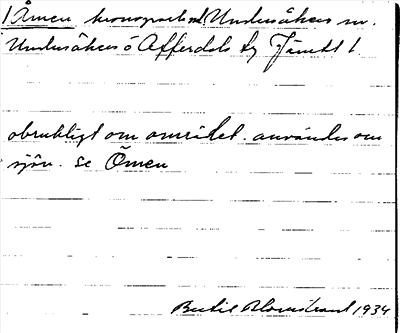 1 Åmen kronopark Undersåkers sn.
Undersåkers o Offerdals tg Jämtl l.
obrukligt om området. användes om
sjön. se Ömen
Bertil Blomstrand 1934